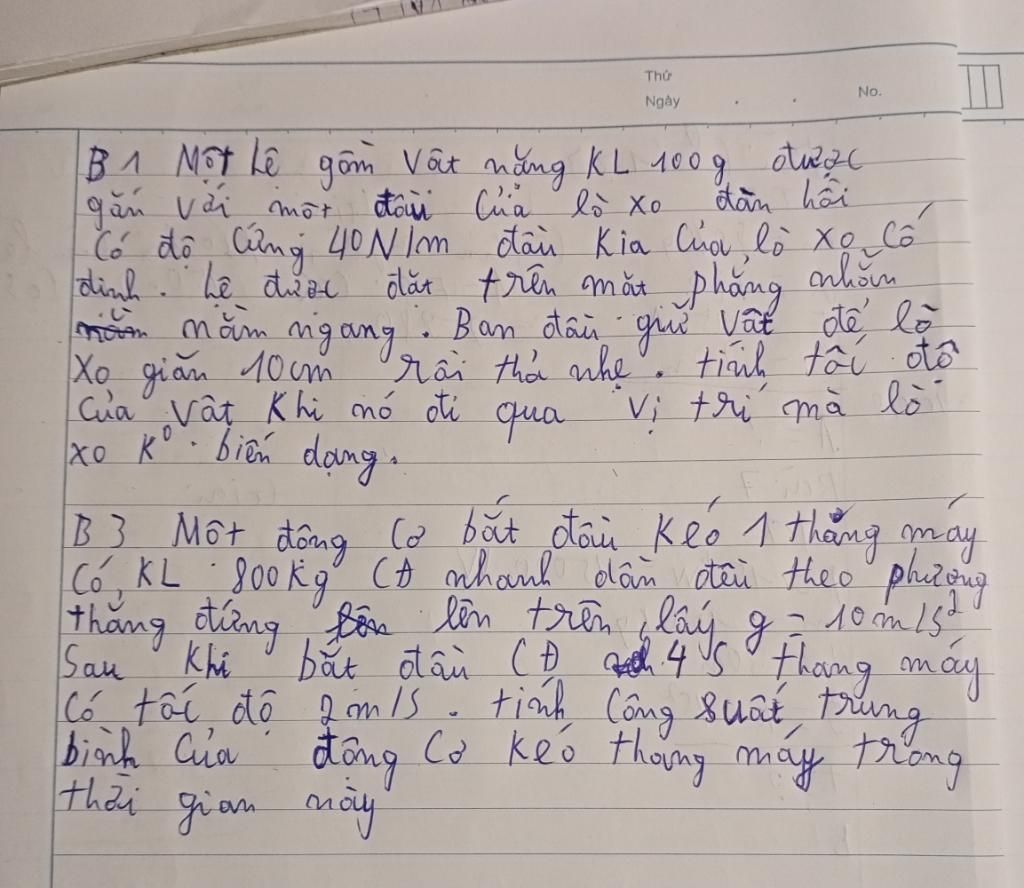 Thứ
Ngày . . No.
B1 Một hệ gồm vật nặng KL 100g được
gắn với một đầu của lò xo đàn hồi
có độ cứng 40N/m đầu kia của lò xo cố
định. hệ được đặt trên mặt phẳng nhẵn
nằm ngang. Ban đầu giữ vật để lò
xo giãn 10cm rồi thả nhẹ. tính tốc độ
của vật khi nó đi qua vị trí mà lò
xo K⁰. biến dạng.
B3 Một động cơ bắt đầu kéo 1 thang máy
có KL 800kg CĐ nhanh dần đều theo phương
thẳng đứng lên trên, lấy g = 10m/s²
Sau khi bắt đầu CĐ 4s thang máy
có tốc độ 2m/s. tính công suất trung
bình của động cơ kéo thang máy trong
thời gian này